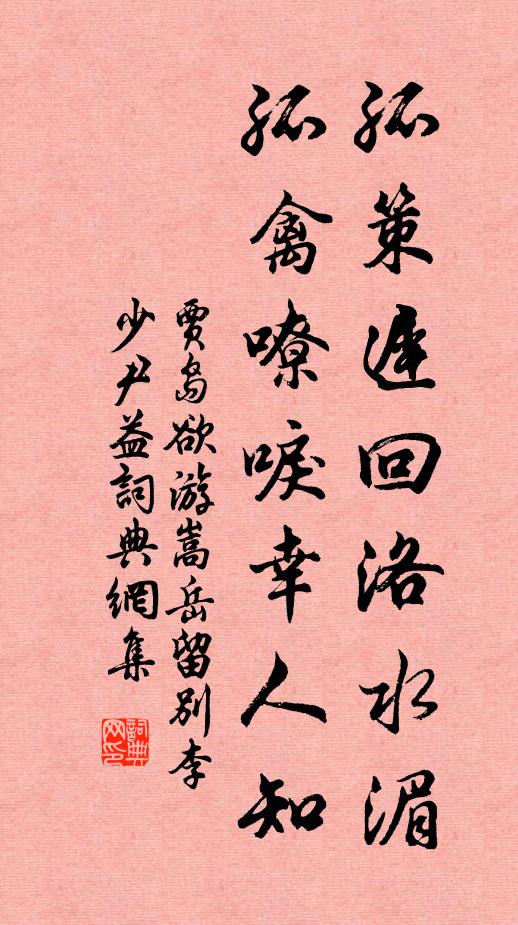 孤策遲回洛水湄
孤禽嘹唳幸人知
賈島欲游嵩岳留別李
少尹益詞典網集
詞典網印